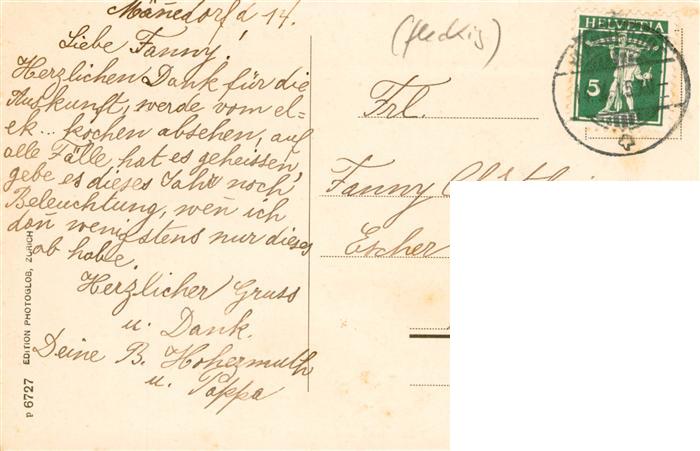 Mänedorf d 14.
Liebe Fanny!
Herzlichen Dank für die
Auskunft, werde vom el-
ek... kochen absehen, auf
alle Fälle, hat es geheissen,
gebe es dieses Jahr noch
Beleuchtung, wen̄ ich
dan̄ wenigstens nur dieses
ob habe.
Herzlicher Gruss
u. Dank.
Deine B. Hohermuth
u. Pappa
(fleckig)
HELVETIA
5
Frl.
Fanny
Escher
p 6727 EDITION PHOTOGLOB, ZÜRICH